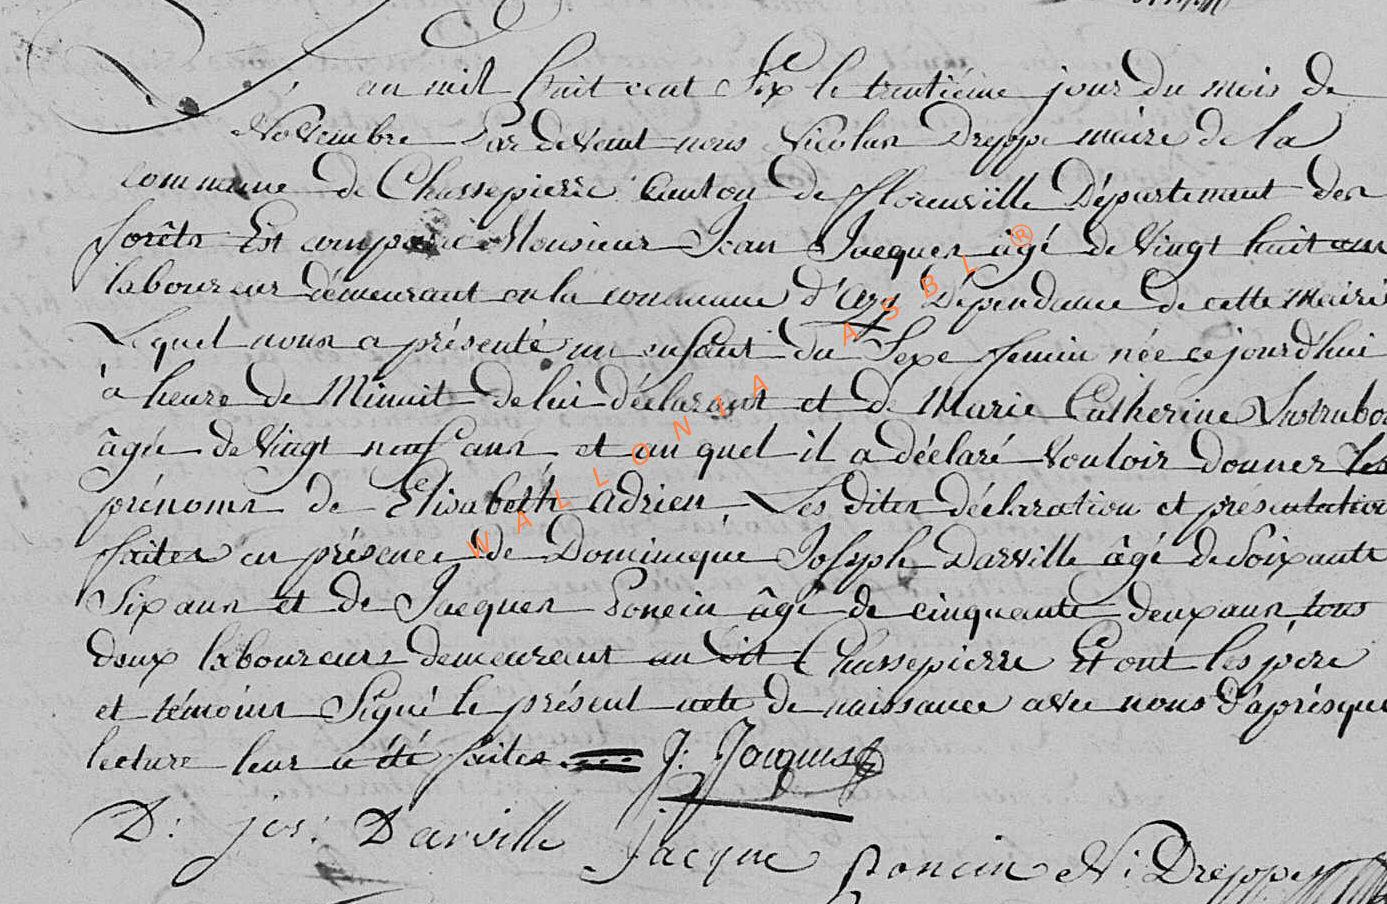 L'an mil huit cent Six le trentiéme jour du mois de
Novembre Par devant nous Nicolas Dreppe maire de la
commune de Chassepierre Canton de fflorenville Département des
forêts Est comparu Monsieur Jean Jacques âgé de Vingt huit ans
laboureur demeurant en la commune d'Azy Dépendance de cette Mairie
Lequel nous a présenté un enfant du Sexe feminin née ce jourd'hui
à heure de Minuit de lui déclarant et de Marie Catherine
âgée de Vingt neuf ans et au quel il a déclaré Vouloir donner les
prénoms de Elisabeth adrien Les dites déclaration et présentation
faites en présence de Dominique Joseph Darville âgé de Soixante
Six ans et de Jacques Poncin âgé de cinquante deux ans tous
deux laboureurs demeurant au dit Chassepierre Et ont les père
et témoins Signé le présent acte de naissance avec nous d'après que
lecture leur a été faites
J: Jacques
D: jos: Darville Jacque Poncin N: Dreppe
WALLONIA ASBL ®